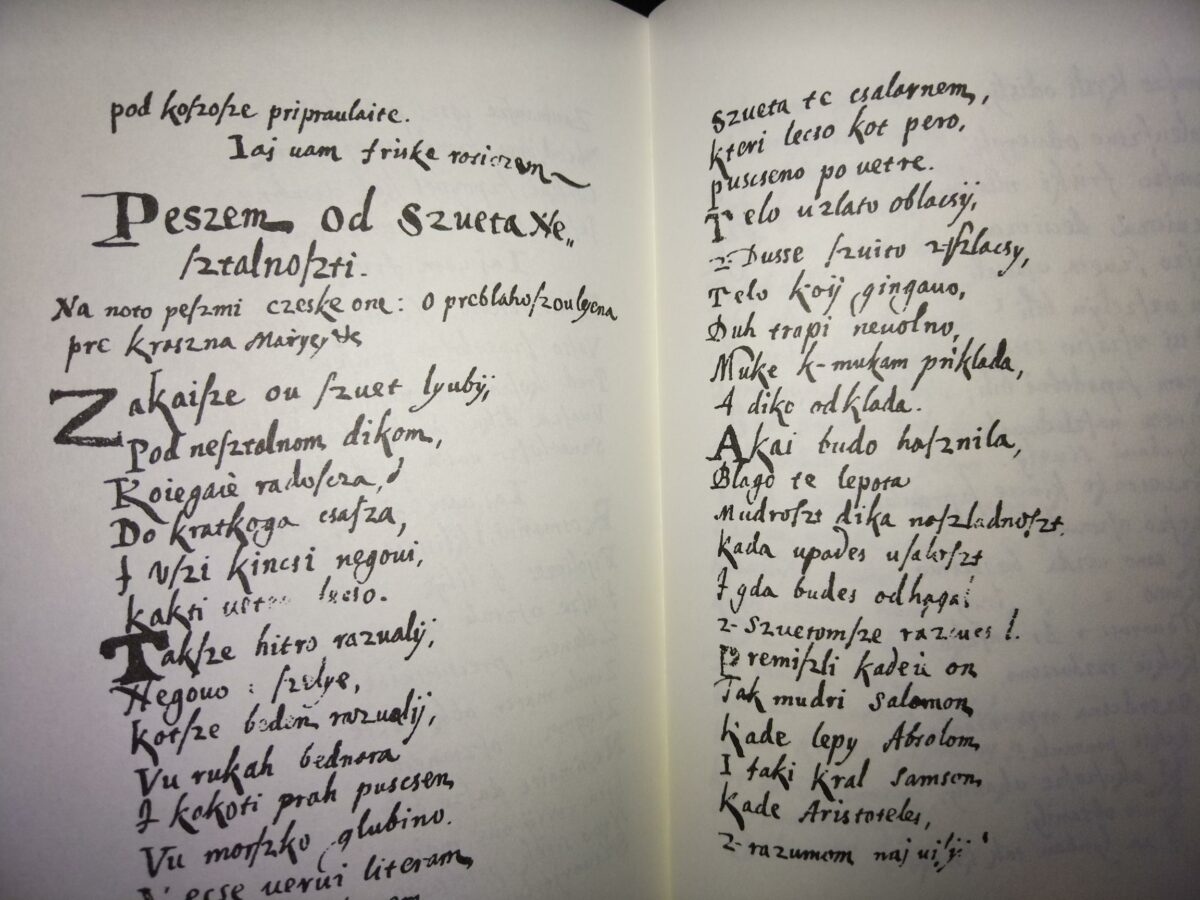 pod koſzoſze pripraulaite.
Iaſ uam friske rosiczem
Peszem od Szueta Ne„
ſztalnoſzti.
Na noto peſzmi czeske one: O preblahoſzoulyena
pre kraszna Mariey
Zakaiſze ou ſzuet lyubÿ,
Pod neſztalnom dikom,
Koiegaiè radoſcza,
Do kratkoga csaſza,
I Vſzi kincsi negoui,
kakti lecso.
Takſze hitro razualÿ,
Negouo
kotſze beden razualÿ,
Vu rukah bednara
I kakoti prah puscsen
Vu morſzko glubino.
uerui literam
Szueta te csalarnem,
kteri lecso kot pero,
puscseno po uetre.
Telo uzlato oblacsÿ,
z-Dusse ſzuito z-ſzlacsy,
Telo koÿ gingauo,
Duh trapi neuolno,
Muke k-mukam priklada,
A dike odklada.
A kai budo haſznila,
Blago te lepota
Mudroſzt dika naſzladnoſzt.
kada upades uſakrſzt
I gda budes odhaga
z-Szuetomſze
Premiſzli kadeie on
Tak mudri Salamon
kade lepy Absolom
I taki kral Samson
kade Aristoteles,
z-razumom naj